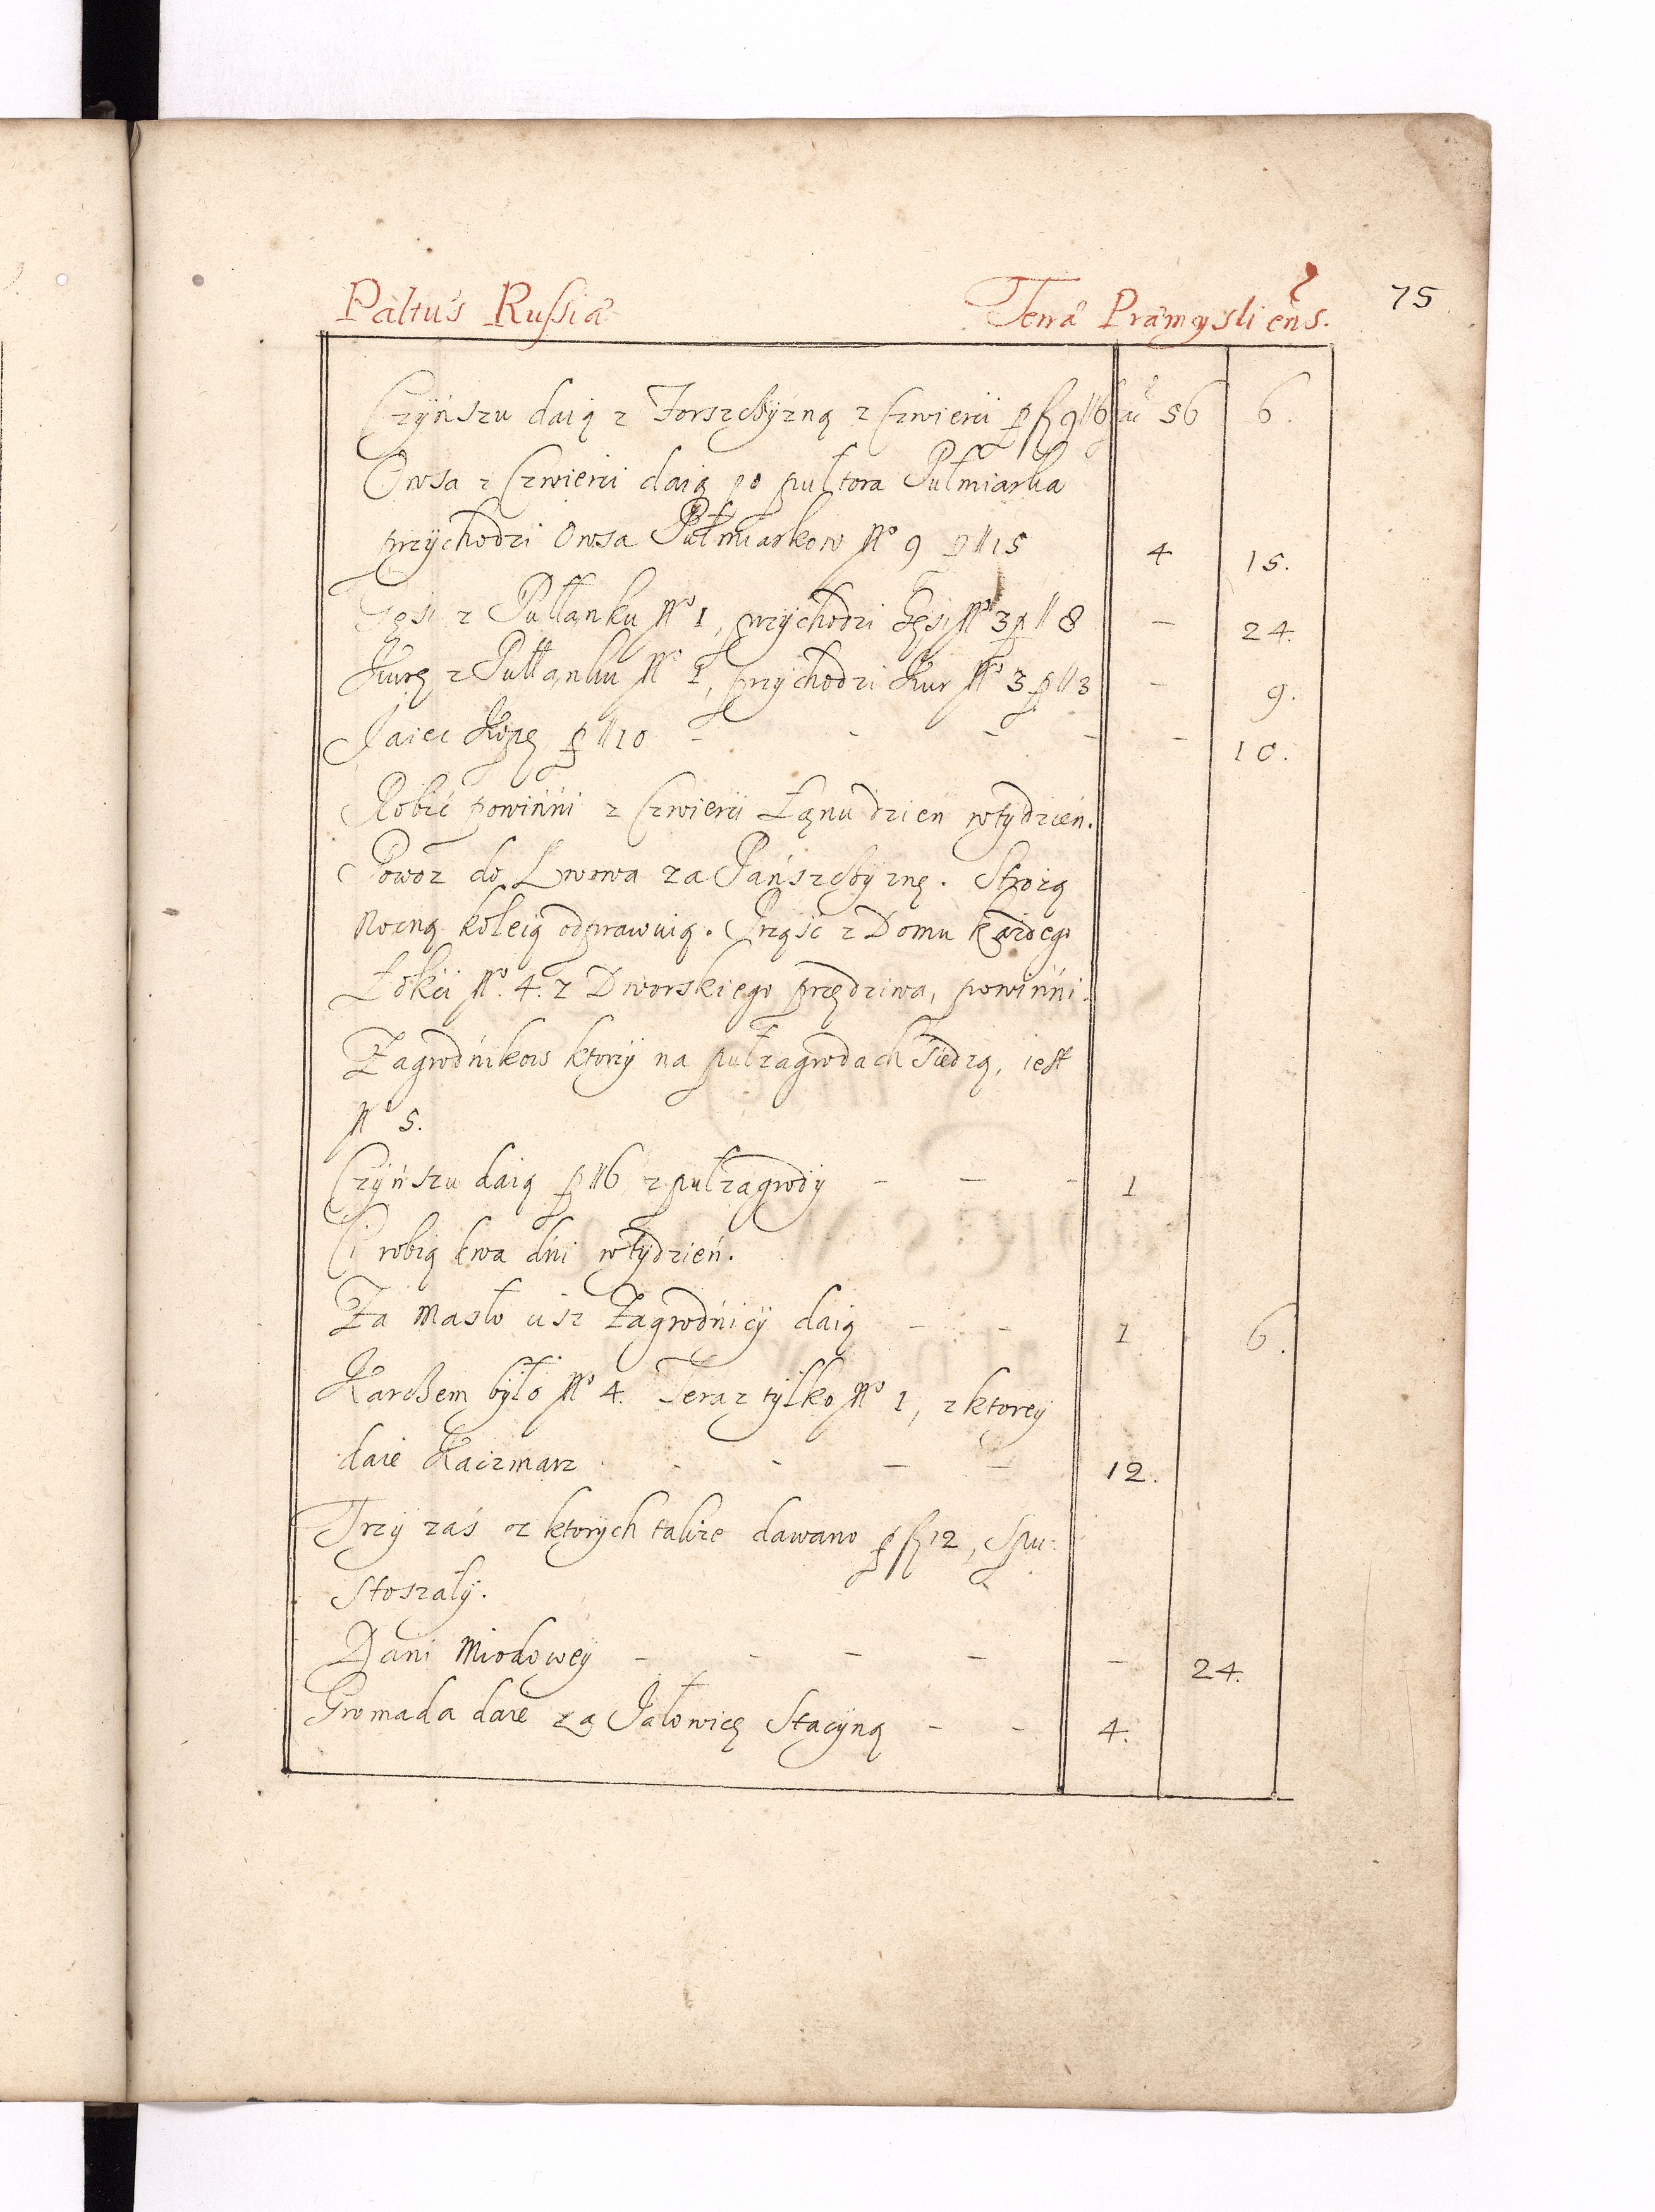 Paltus Russiæ Terræ Præmysliens. 75
Czÿńszu daią z Forszchÿzną z Czwierci p fl 9 gr 6 fac 56 6.
Owsa z Czwierci daią po pułtora Pułmiarka
przÿchodzi Owsa Pułmiarkow No 9 p gr 15 4 15.
Gęsi z Pułłanku No 1, przÿchodzi Gęsi No 3 p gr 8 – 24.
Kurę z Pułłanku No 1, przÿchodzi Kur No 3 p gr 3 – 9.
Jaiec Kopę p gr 10 – – – – – 10.
Robić powińni z Czwierci Łanu dzień wtÿdzień.
Powoz do Lwowa za Pańszchÿznę. Strożą
Nocną koleią odprawuią. Prząść z Domu każdego
Łokci No. 4. z Dworskiego przędziwa, powińni.
Zagrodńikow ktorzÿ na pułzagrodach siedzą, iest
No 5.
Czÿńszu daią p gr 6 z pułzagrodÿ – – – 1
Ci robią dwa dńi wtÿdzień.
Za Masło cisz Zagrodńicÿ daią – – 1 6.
Karchem bÿło No 4. Teraz tÿlko No 1, z ktoreÿ
daie Kaczmarz – – – – 12.
Trzÿ zaś z ktorÿch także dawano p fl 12, Spu:
stoszałÿ.
Dani Miodoweÿ – – – – – 24.
Gromada daie za Jałowicę Stacÿną – – 4.